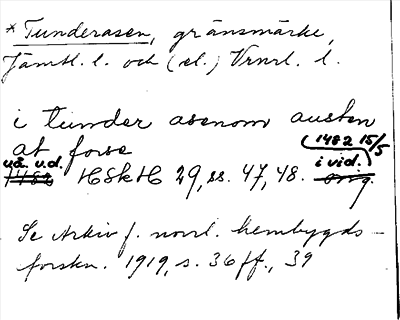 * Tunderasen, gränsmärke,
Jämtl. l. och (el.) Vrml. l.
i tunder asenom austen
at forse
1482 15/5
u.å. u.d. i vid.
1482 HSkH 29, ss. 47, 48. orig.
Se Arkiv f. norrl. hembygds-
forskn. 1919, s. 36 ff., 39